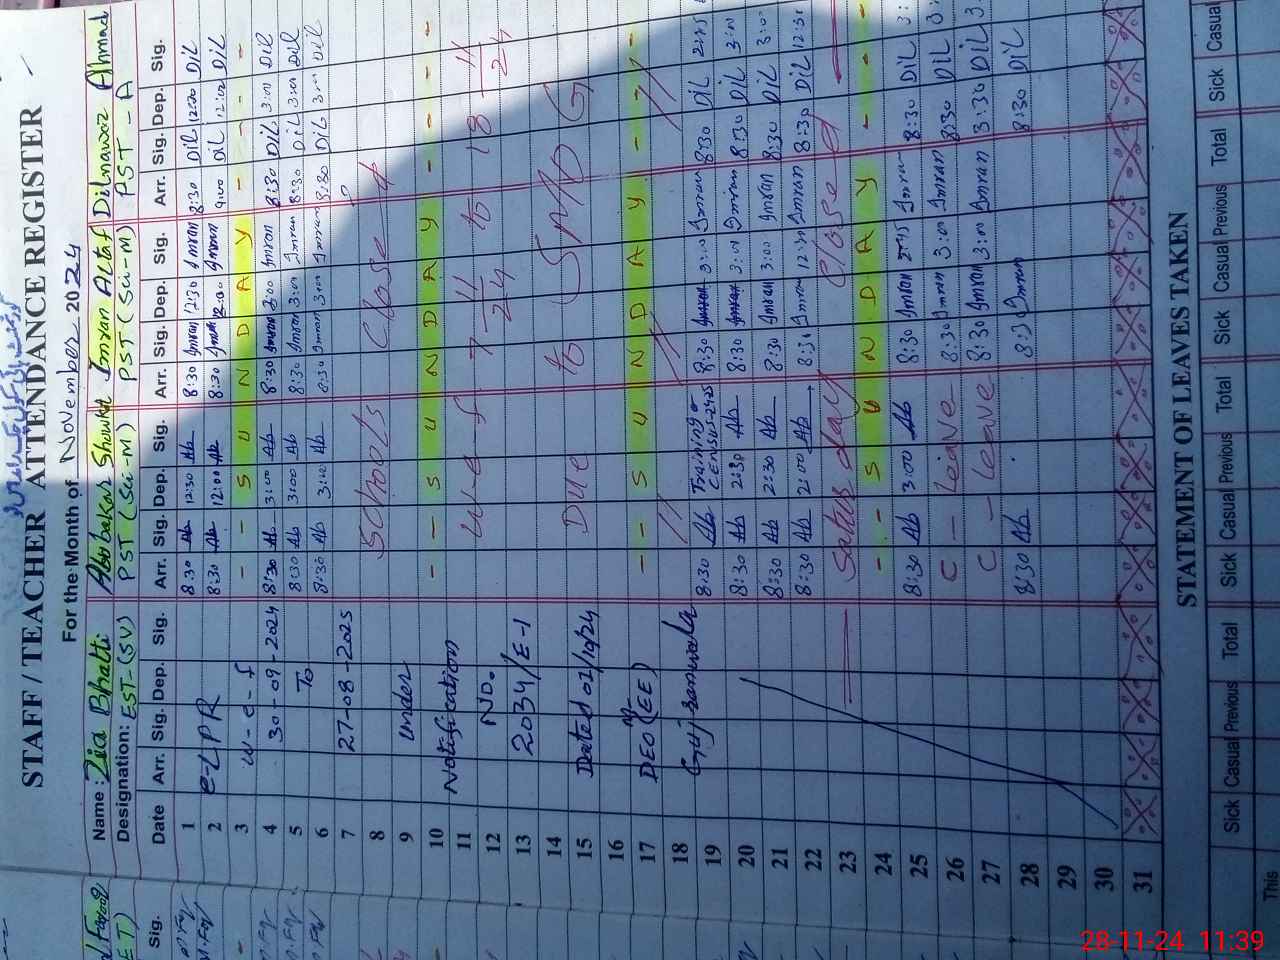 STAFF / TEACHER ATTENDANCE REGISTER
For the Month of November 2024
Name: Zia Bhatti Abubakar Showkat Imran Altaf Dilnawaz Ahmad
Designation: EST-(SV) PST (Sci-M) PST (Sci-M) PST - A
Date Arr. Sig. Dep. Sig. Arr. Sig. Dep. Sig. Arr. Sig. Dep. Sig. Arr. Sig. Dep. Sig.
1 8:30 Ab 12:30 Ab 8:30 Imran 12:30 Imran 8:30 DiL 12:30 DiL
2 e-LPR 8:30 Ab 12:00 Ab 8:30 Imran 12:00 Imran 9:00 DiL 12:00 DiL
3 w-e-f - - S U N D A Y - - - -
4 30-09-2024 8:30 Ab 3:00 Ab 8:30 Imran 3:00 Imran 8:30 DiL 3:00 DiL
5 To 8:30 Ab 3:00 Ab 8:30 Imran 3:00 Imran 8:30 DiL 3:00 DiL
6 8:30 Ab 3:00 Ab 8:30 Imran 3:00 Imran 8:30 DiL 3:00 DiL
7 27-08-2025
8 Schools Close d
9 under
10 - - S U N D A Y - - - -
11 Notification w-e-f 7-11/24 to 18-11/24
12 No.
13 2034/E-1
14
15 Dated 02/10/24 Due to (SMOG)
16
17 DEO (EE) - - S U N D A Y - - -
18 Gujranwala
19 8:30 Ab Training of Census-24-25 8:30 Imran 3:00 Imran 8:30 DiL 2:15
20 8:30 Ab 2:30 Ab 8:30 Imran 3:00 Imran 8:30 DiL 3:00
21 8:30 Ab 2:30 Ab 8:30 Imran 3:00 Imran 8:30 DiL 3:00
22 8:30 Ab 2:00 Ab 8:30 Imran 12:30 Imran 8:30 DiL 12:30
23 Saturday Closed
24 - - S U N D A Y - -
25 8:30 Ab 3:00 Ab 8:30 Imran 2:15 Imran 8:30 DiL 3:
26 C - Leave 8:30 Imran 3:00 Imran 8:30 DiL 3:
27 C - Leave 8:30 Imran 3:00 Imran 3:30 DiL 3.
28 8:30 Ab 8:30 Imran 8:30 DiL
29
30
31
STATEMENT OF LEAVES TAKEN
Sick Casual Previous Total Sick Casual Previous Total Sick Casual Previous Total Sick Casual
This
28-11-24 11:39